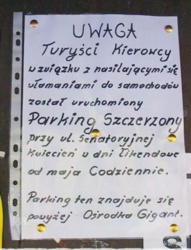 UWAGA
Turyści Kierowcy
w związku z nasilającymi się
włamaniami do samochodów
został uruchomiony
Parking Szczerzony
przy ul. Senatoryjnej
Kulecień w dni likendowe
od maja Codziennie.
Parking ten znajduje się
powyżej Ośrodka Gigant.